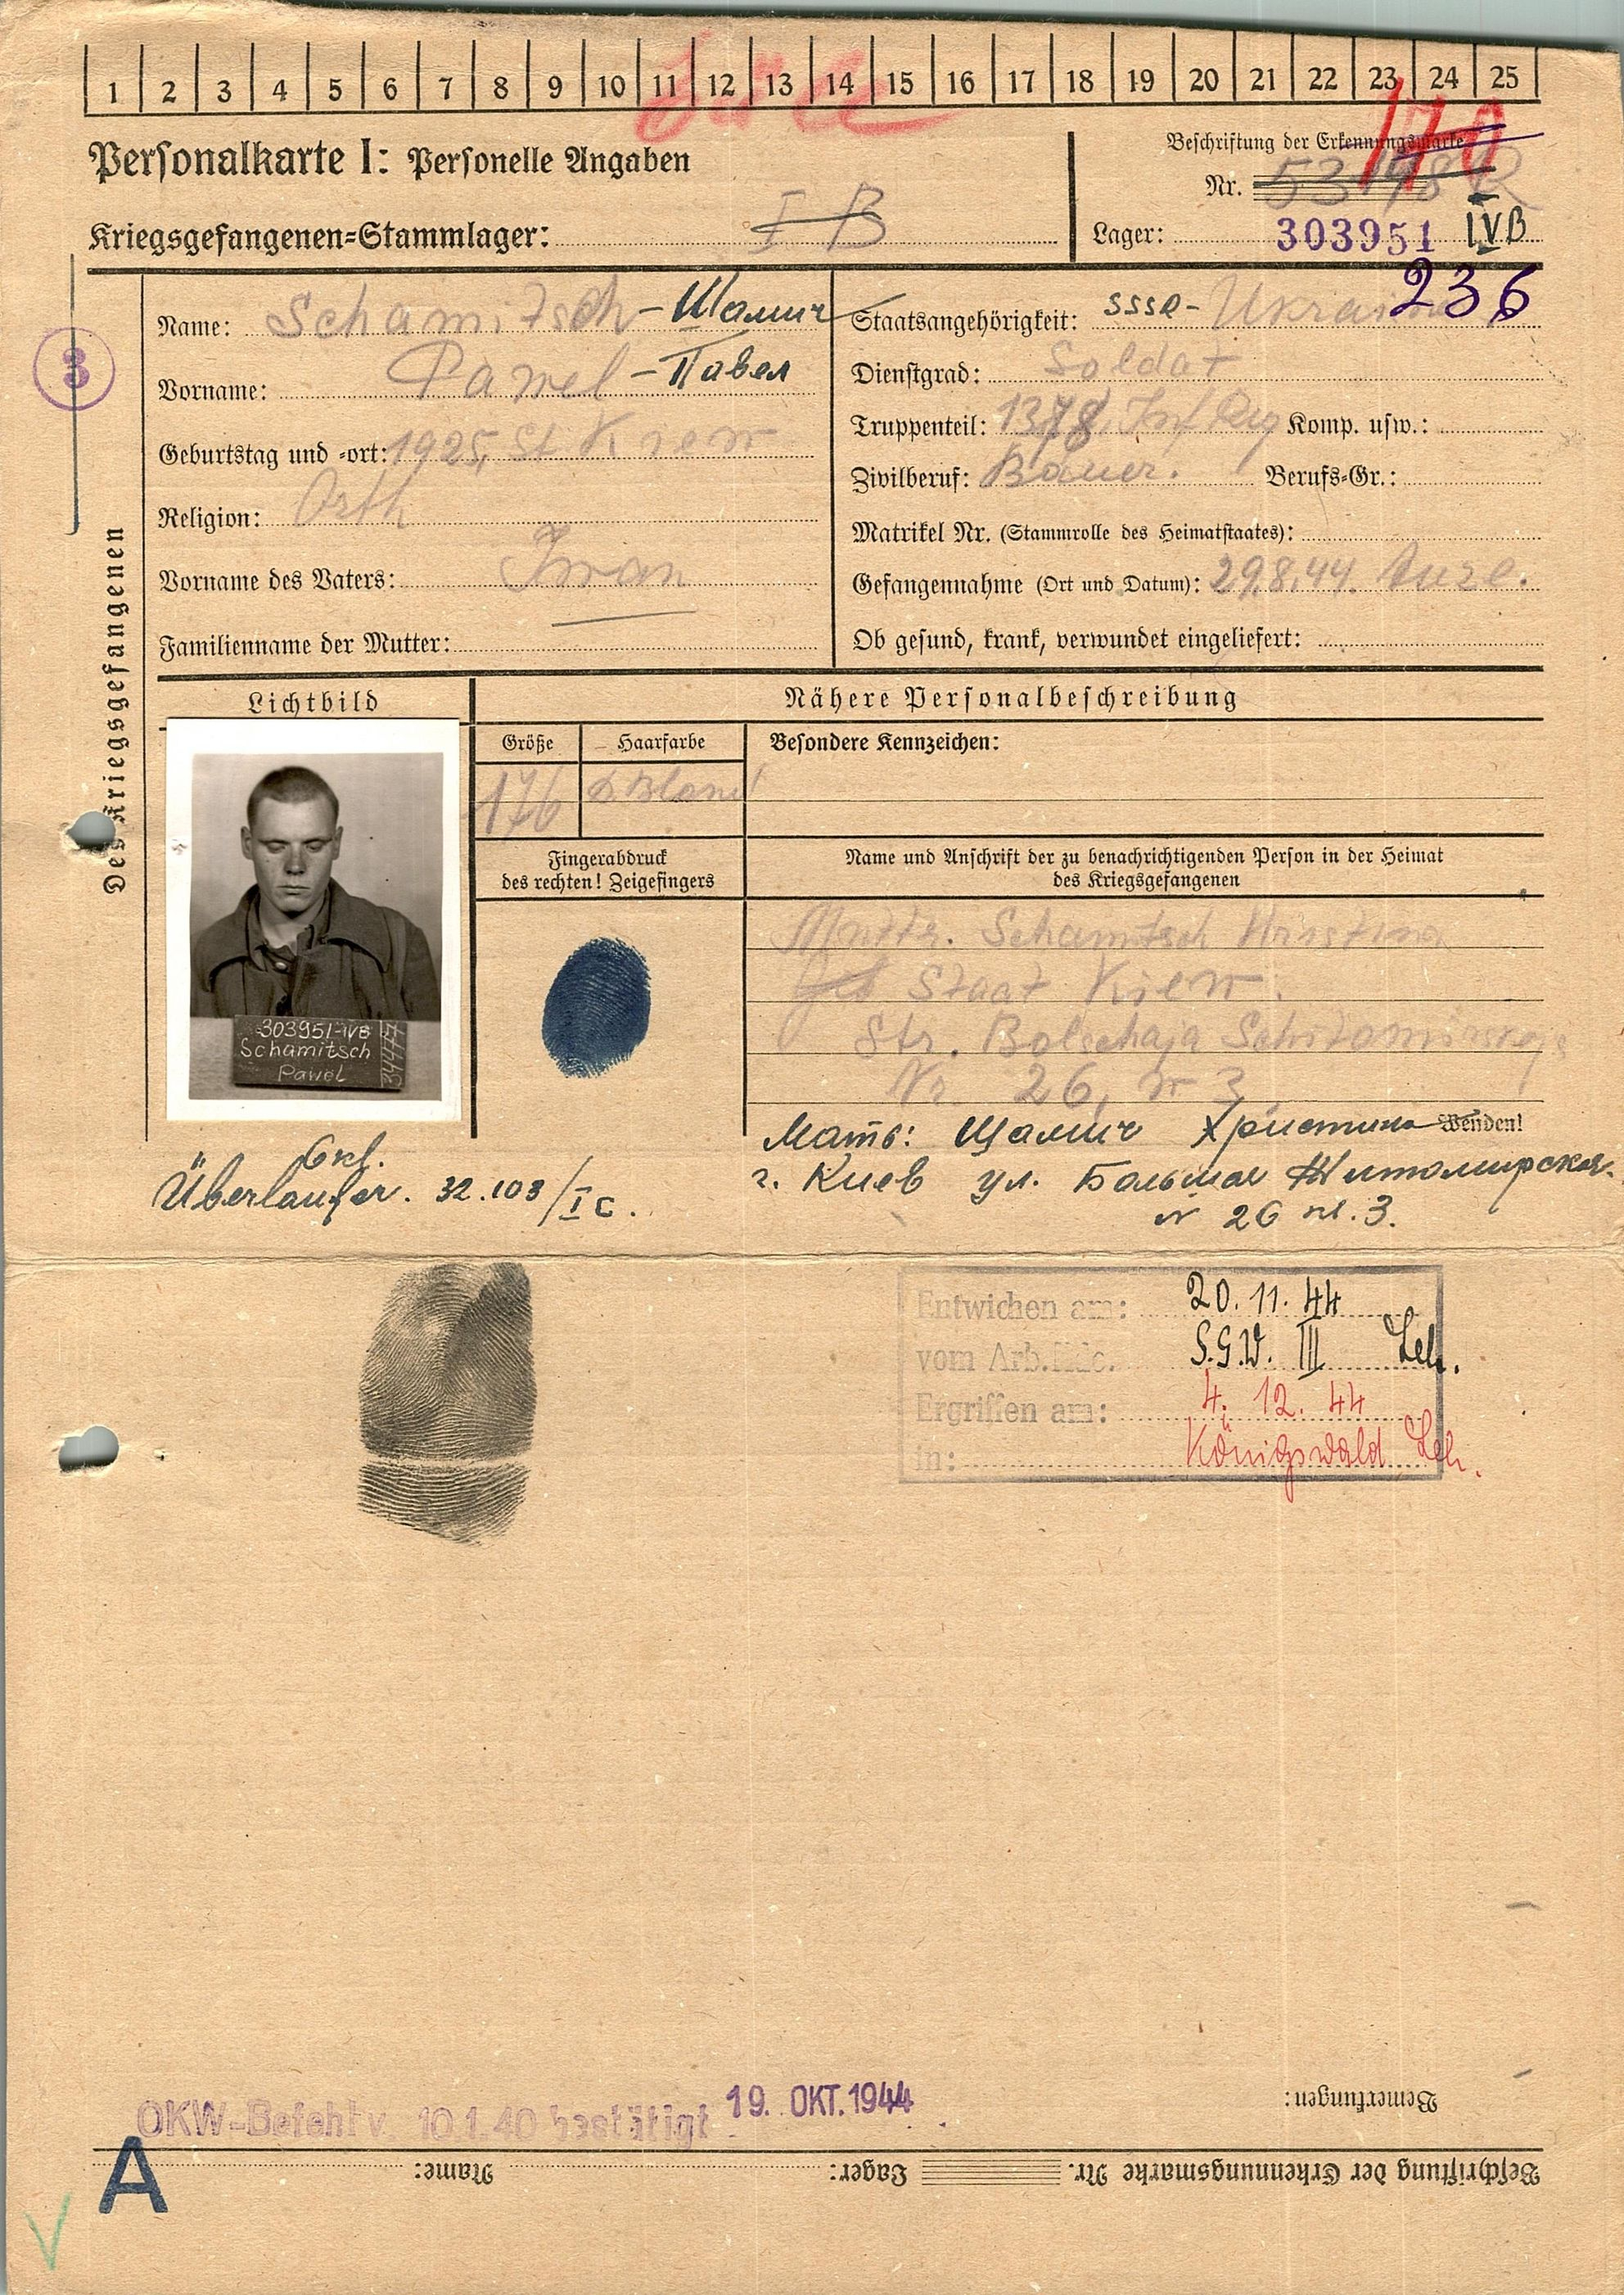 1 2 3 4 5 6 7 8 9 10 11 12 13 14 15 16 17 18 19 20 21 22 23 24 25
170
Personalkarte I: Personelle Angaben
Beschriftung der Erkennungsmarke
Nr.
Kriegsgefangenen=Stammlager: I B
Lager: 303951 IVB
236
3
Des Kriegsgefangenen
Name: Schamitsch - Шамич
Vorname: Pawel - Павел
Geburtstag und =ort: 1925, St Kiew
Religion: Orth
Vorname des Vaters: Iwan
Familienname der Mutter:
Staatsangehörigkeit: SSSR - Ukraine
Dienstgrad: Soldat
Truppenteil: 1378, Inf Reg Komp. usw.:
Zivilberuf: Bauer. Berufs=Gr.:
Matrikel Nr. (Stammrolle des Heimatstaates):
Gefangennahme (Ort und Datum): 29.8.44.
Ob gesund, krank, verwundet eingeliefert:
Lichtbild
Nähere Personalbeschreibung
Größe Haarfarbe Besondere Kennzeichen:
176 D. Blond
303951-IVB
Schamitsch
Pawel
Fingerabdruck
des rechten! Zeigefingers
Name und Anschrift der zu benachrichtigenden Person in der Heimat
des Kriegsgefangenen
Schamitsch Kristina
Staat Kiew.
Str. Bolschaja Schitomirskaja
Nr. 26, w 3
Wenden!
Мать: Шамич Христина
г. Киев ул. Большая Житомирская
№ 26 кв. 3.
Überläufer. 32.103/Ic.
Entwichen am: 20. 11. 44
vom Arb.Kdo. S.G.W. III Leh.
Ergriffen am: 4. 12. 44
in: Königswald Leh.
Bemerkungen:
OKW-Befehl v. 10.1.40 bestätigt 19. OKT. 1944
Beschriftung der Erkennungsmarke Nr. Lager: Name:
A